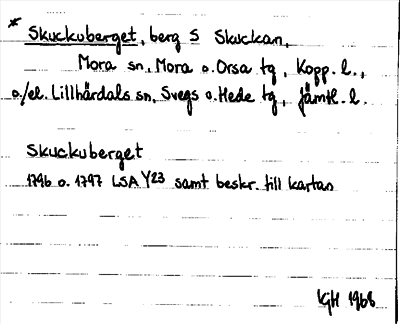 * Skuckuberget, berg S Skuckan,
Mora sn, Mora o. Orsa tg, Kopp. l.,
o./el. Lillhärdals sn, Svegs o. Hede tg, Jämtl. l.
Skuckuberget
1796 o. 1797 LSA Y23 samt beskr. till kartan
KGH 1968